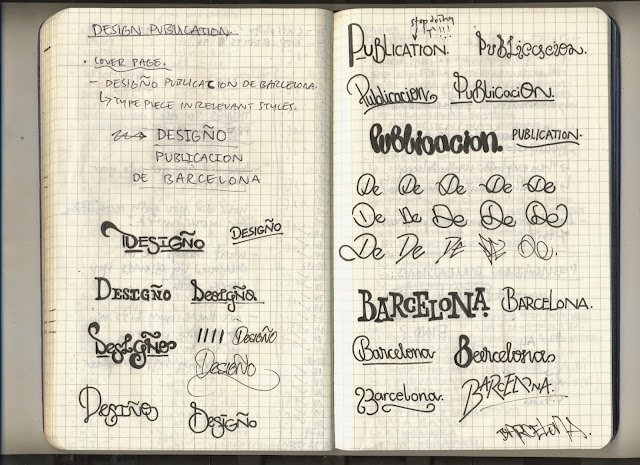 DESIGN PUBLICATION.
• COVER PAGE.
– DESIGÑO PUBLICACION DE BARCELONA.
↳ TYPE PIECE IN RELEVANT STYLES.
DESIGÑO
PUBLICACION
DE BARCELONA
DESIGÑO DESIGÑO
DESIGÑO Desigña
Desigño DESIGÑO
DESIGÑO
DESIGÑO DESIGÑO
stop doing
PUBLICATION. Publicacion.
Publicacion PUBlicaciON.
Publicacion. PUBLICATION.
De De De De De
De De De De De
De De De De De.
BARCELONA. BARCELONA.
Barcelona Barcelona
Barcelona. BARCELONA.
BARCELONA.